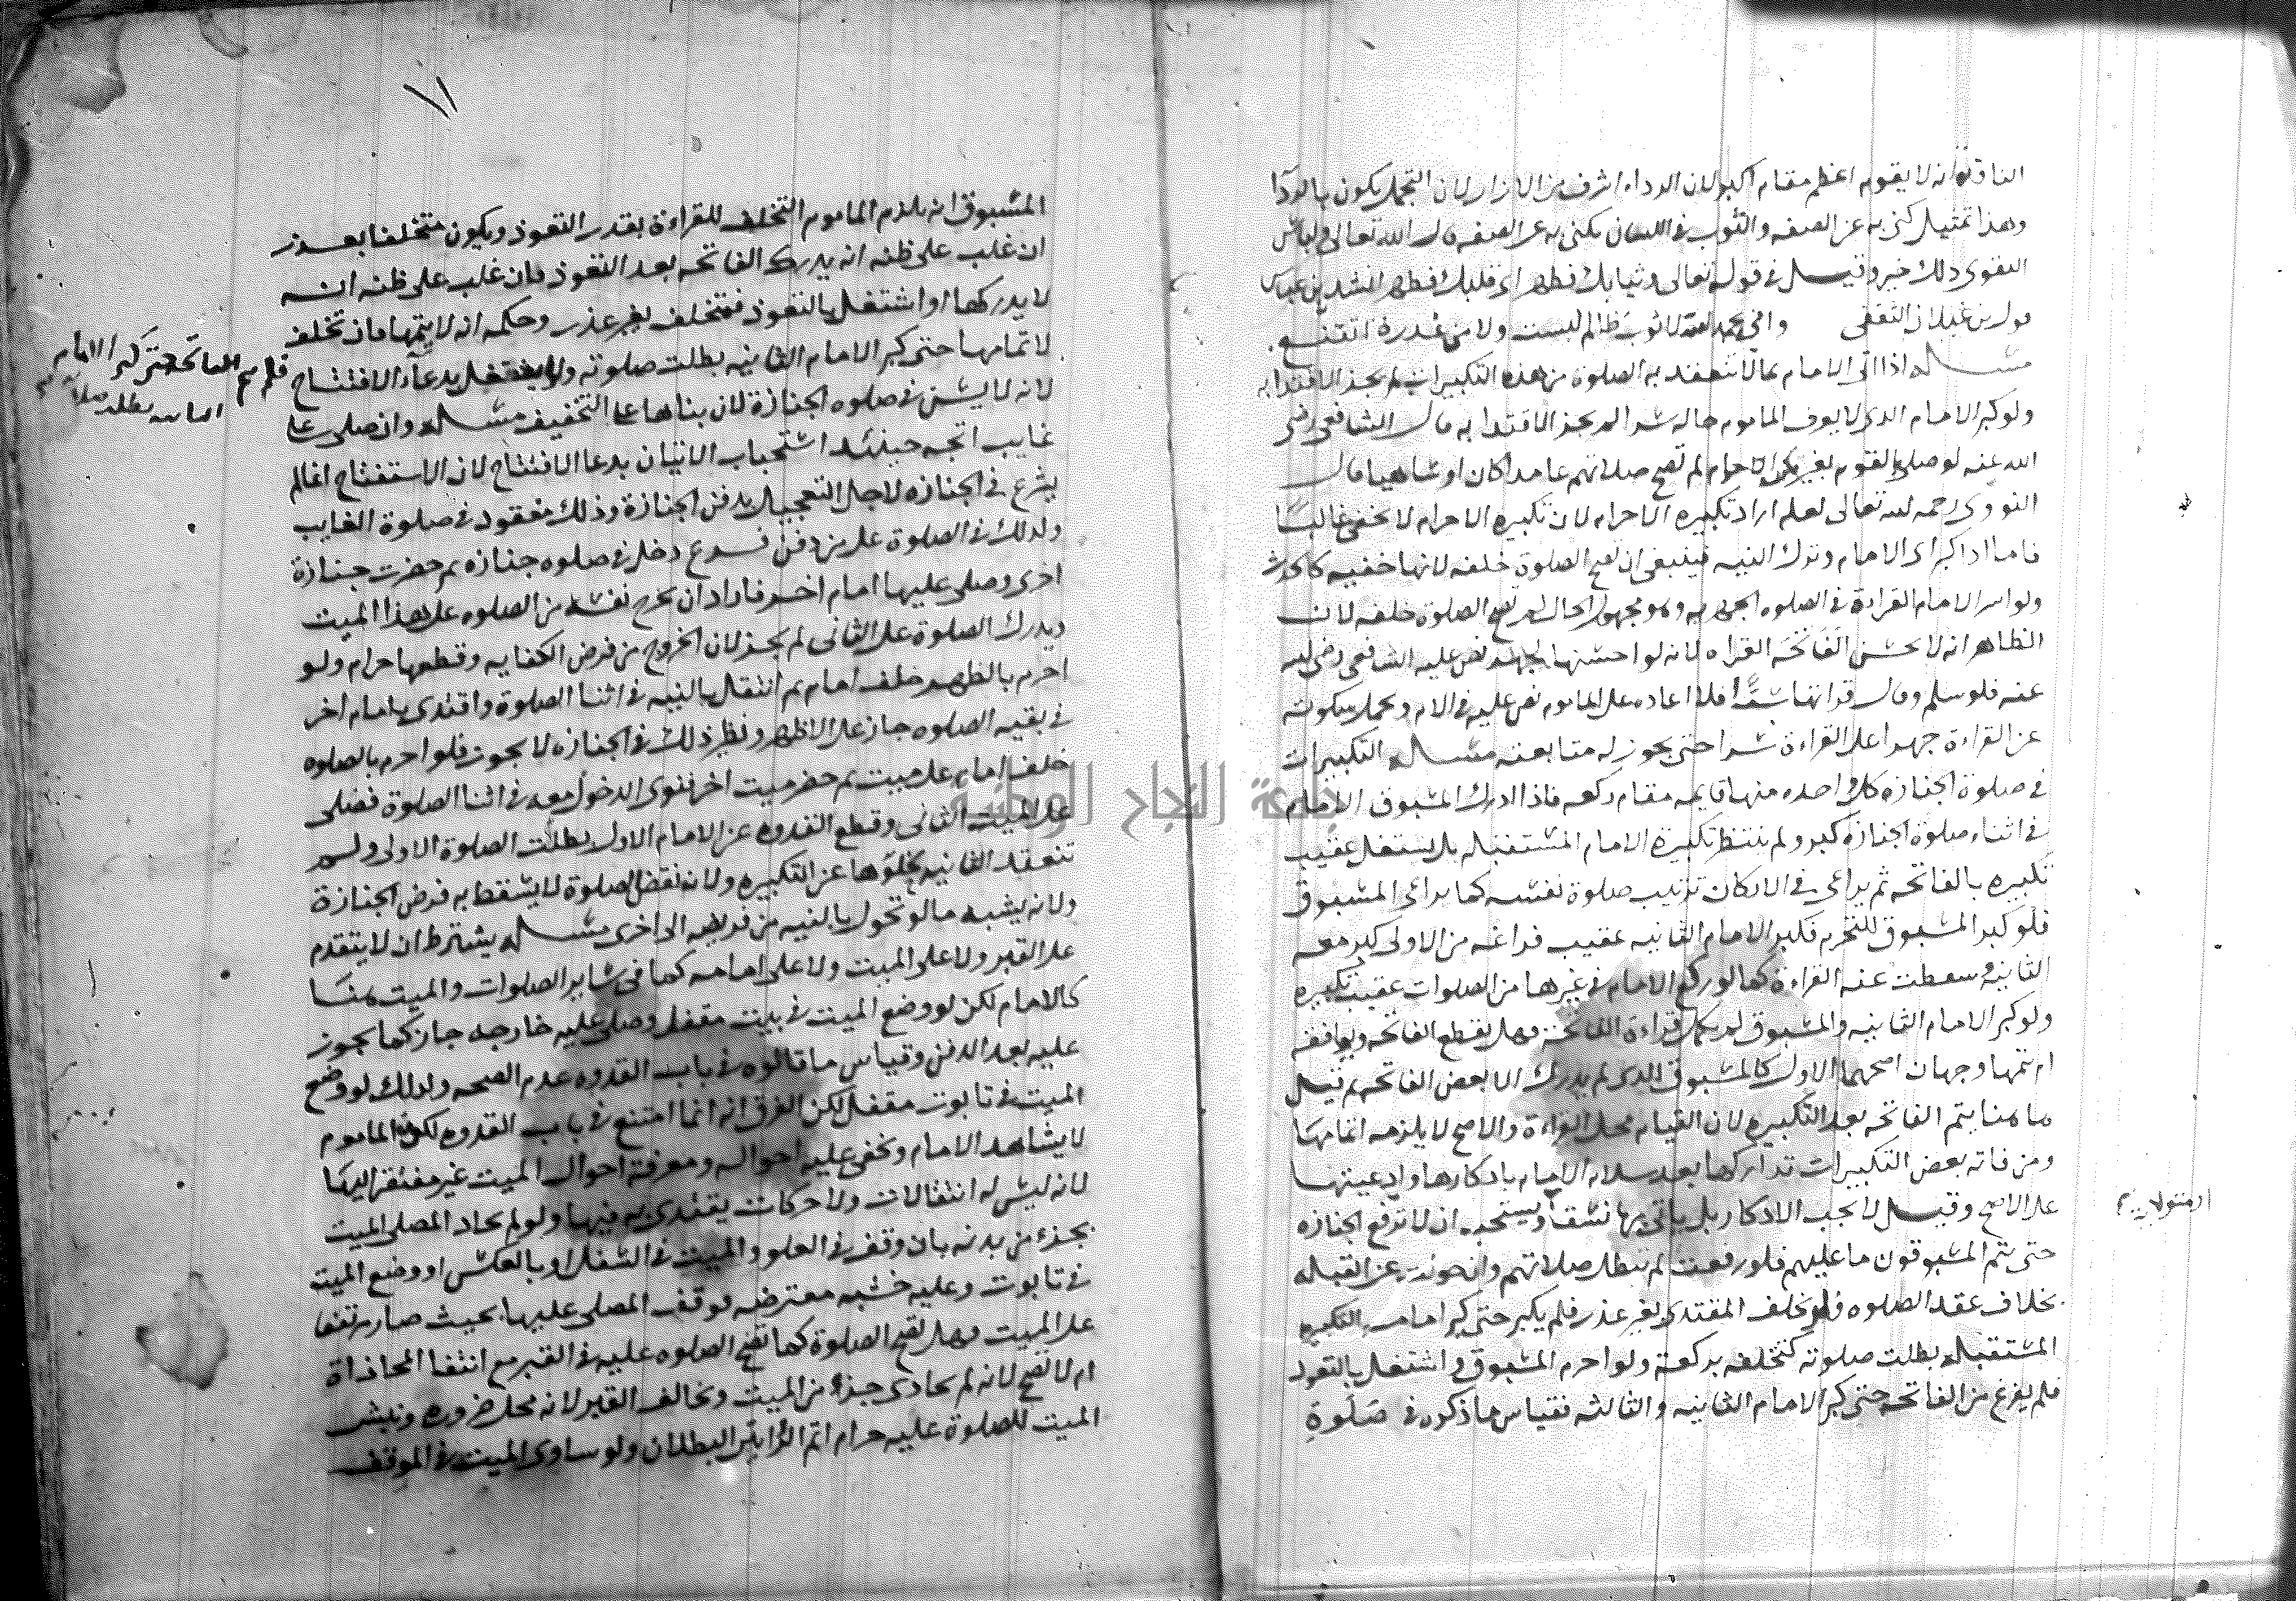 الناقله انه لا يقوم اعظم مقام اكبر لان الرداء اشرف من الازار لان التجمل يكون بالردآ
وهذا تمثيل كنى به عن الصفه والثوب في اللسان يكنى به عن الصفه قال الله تعالى ولباس
التقوى ذلك خير وقيل في قوله تعالى وثيابك فطهر اى قلبك فطهر انشد ابن عباس
قول بن غيلان الثقفى واني بحمد الله لا ثوب ظالم لبست ولا من غدرة اتقنع
مسـله اذا اتى الامام بما لا تنعقد به الصلوة من هذه التكبيرات لم يجز الاقتدا به
ولو كبر الامام الدى لا يعرف الماموم حاله سرا لم يجز الاقتدا به قال الشافعى رضى
الله عنه لو صلى بالقوم بغير الاحرام لم تصح صلاتهم عامدا كان او ساهيا قال
النووى رحمه لله تعالى لعله اراد تكبيره الاحرام لان تكبيره الاحرام لا تخفى غالبًا
فاما ادا كبر اى الامام وترك النيه فينبغى ان تصح الصلوة خلفه لانها خفيه كالحدث
ولو اسر الامام القراءة في الصلوه الجهريه وهو مجهول الحال لم تصح الصلوة خلفه لان
الظاهر انه لا يحسن الفاتحه القراه لانه لو احسنها لجهر نص عليه الشافعى رضى لله
عنه فلو سلم وقال قراتها سرًا فلا اعاده على الماموم نص عليه في الام ويحمل سكوته
عن القراءة جهرا على القراءة سرا حتى يجوز له متابعته مسـله التكبيرات
في صلوة الجنازه كل واحده منها قايمه مقام ركعه فاذا ادرك المسبوق الامام
في اثناء صلوة الجنازه كبر ولم ينتظر تكبيرة الامام المستقبله بل يستغل عقيب
تكبيره بالفاتحه ثم يراعى في الاركان ترتيب صلوة نفسه كما يراعى المسبوق
فلو كبر المسبوق للتحرم فكبر الامام الثانيه عقيب فراغه من الاولى كبر معه
الثانيه وسقطت عنه القراءة كما لو ركع الامام في غيرها من الصلوات عقيب تكبيره
ولو كبر الامام الثانيه والمسبوق لم يكمل قراءة الفاتحة فهل يقطع الفاتحه ويوافقه
ام يتمها وجهان اصحهما الاول كالمسبوق الدى لم يدرك الا بعض الفاتحه ثم قيل
ها هنا يتم الفاتحه بعد التكبيره لان القيام محل القراءة والاصح لا يلزمه اتمامها
ومن فاته بعض التكبيرات تداركها بعد سلام الامام بادكارها وادعيتها
على الاصح وقيل لا يجب الادكار بل ياتى بها نسقا ويستحب ان لا ترفع الجنازه
حتى يتم المسبوقون ما عليهم فلو رفعت لم تبطل صلاتهم وان حولت عن القبله
بخلاف عقد الصلوه فلو تخلف المقتدى بغير عذر فلم يكبر حتى كبر امامه التكبيره
المستقبله بطلت صلوته كتخلفه بركعة ولو احرم المسبوق واشتغل بالتعود
فلم يفرغ من الفاتحه حتى كبر الامام الثانيه والثالثه فقياس ما ذكروه في صلوة
١١
المسبوق انه يلزم الماموم التخلف للقراءة بقدر التعوذ ويكون متخلفا بعذر
ان غلب على ظنه انه يدرك الفاتحه بعد التعوذ فان غلب على ظنه انه
لا يدركها او اشتغل بالتعوذ فمتخلف بغير عذر وحكمه انه لا يتمها فان تخلف
لاتمامها حتى كبر الامام الثانيه بطلت صلوته ولا يشتغل بدعآ الافتتاح
فلم يتم الفاتحة حتى كبر الامام
لانه لا يسن في صلوه الجنازة لان بناها على التخفيف مسـله وان صلى على
غايب اتجه حينئد استحباب الاتيان بدعا الافتتاح لان الاستفتاح انما لم
يشرع في الجنازه لاجل التعجيل بدفن الجنازة وذلك مفقود في صلوة الغايب
ولدلك في الصلوة على من دفن فـرع دخل في صلوه جنازه ثم حضرت جنازة
اخرى وصلى عليها امام اخر فاراد ان يخرج نفسه من الصلوه على هذا الميت
ويدرك الصلوة على الثانى لم يجز لان الخروج من فرض الكفايه وقطعها حرام ولو
احرم بالظهر خلف امام ثم انتقل بالنيه في اثنا الصلوة واقتدى بامام اخر
في بقيه الصلوه جاز على الاظهر ونظير ذلك في الجنازه لا يجوز فلو احرم بالصلوه
خلف امام على ميت ثم حضر ميت اخر فنوى الدخول معه في اثنا الصلوة فصلى
على الميت الثانى وقطع القدوه عن الامام الاول بطلت الصلوة الاولى ولم
تنعقد الثانيه لخلوها عن التكبيره ولانه نقض الصلوة لا يسقط به فرض الجنازة
ولانه يشبه ما لو تحول بالنيه من فريضه الى اخرى مسـله يشترط ان لا يتقدم
على القبر ولا على الميت ولا على امامه كما في ساير الصلوات والميت هنا
كالامام لكن لو وضع الميت في بيت مقفل وصلى عليه خارجه جاز كما يجوز
عليه بعد الدفن وقياس ما قالوه في باب القدوه عدم الصحه ولدلك لو وضع
الميت في تابوت مقفل لكن الفرق انه انما امتنع في باب القدوه لكون الماموم
لا يشاهد الامام وتخفى عليه احواله ومعرفة احوال الميت غير مفتقر اليها
لانه ليس له انتقالات ولا حركات يقتدى به فيها ولو لم يحاد المصلى الميت
بجزء من بدنه بان وقف في العلو والميت في السفل او بالعكس او وضع الميت
في تابوت وعليه خشبه معترضه فوقف المصلى عليها بحيث صار مرتفعا
على الميت فهل تصح الصلوة كما تصح الصلوه عليه في القبر مع انتفا المحاذاة
ام لا تصح لانه لم يحادى جزءا من الميت ويخالف القبر لانه محل ضروره ونبش
الميت للصلوة عليه حرام اتم الرايين البطلان ولو ساوى الميت في الموقف
جامعة النجاح الوطنية